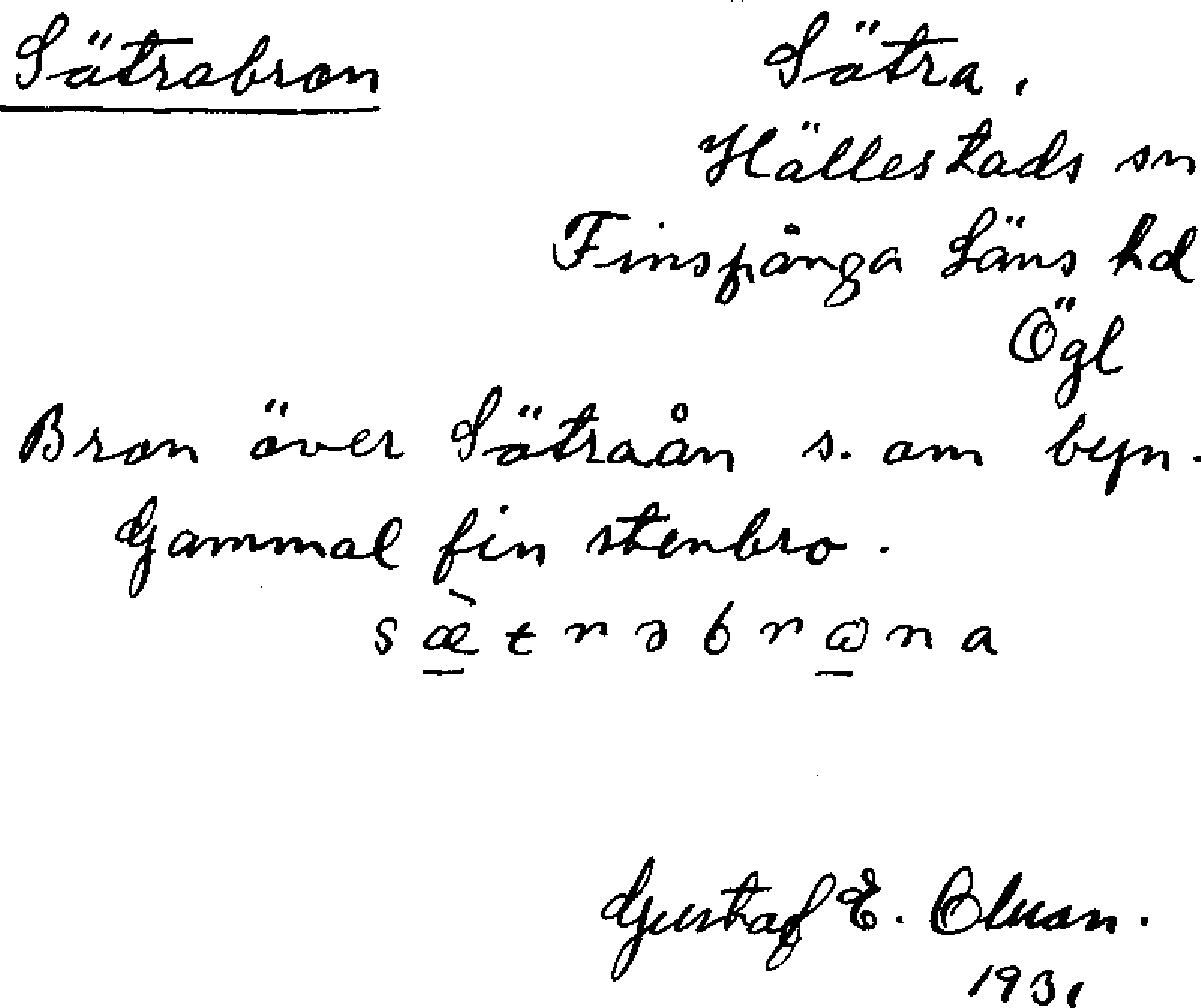 Sätrabron
Sätra.
Hällestads sn
Finspånga Läns hd
Ögl
Bron över Sätraån s. om byn.
Gammal fin stenbro.
sæ̀trəbrωna
Gustaf E. Olsson.
1931